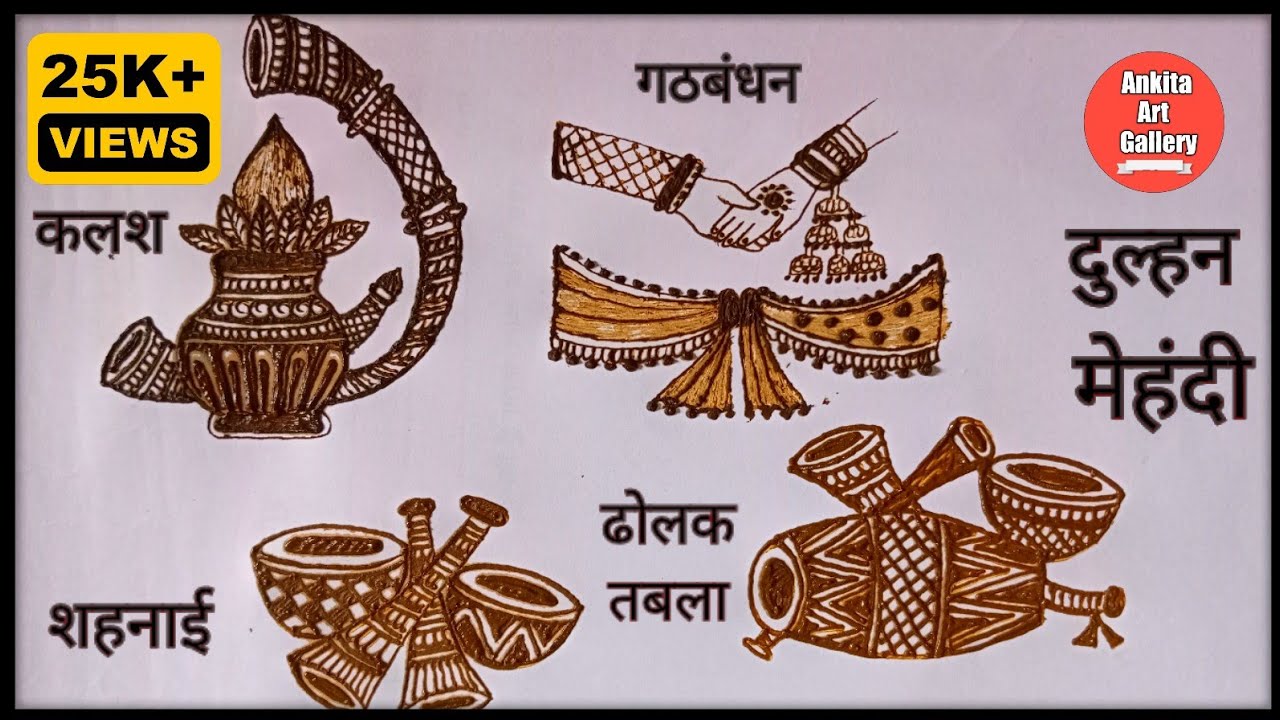 25K+
VIEWS
कलश
गठबंधन
Ankita
Art
Gallery
दुल्हन
मेहंदी
शहनाई
ढोलक
तबला